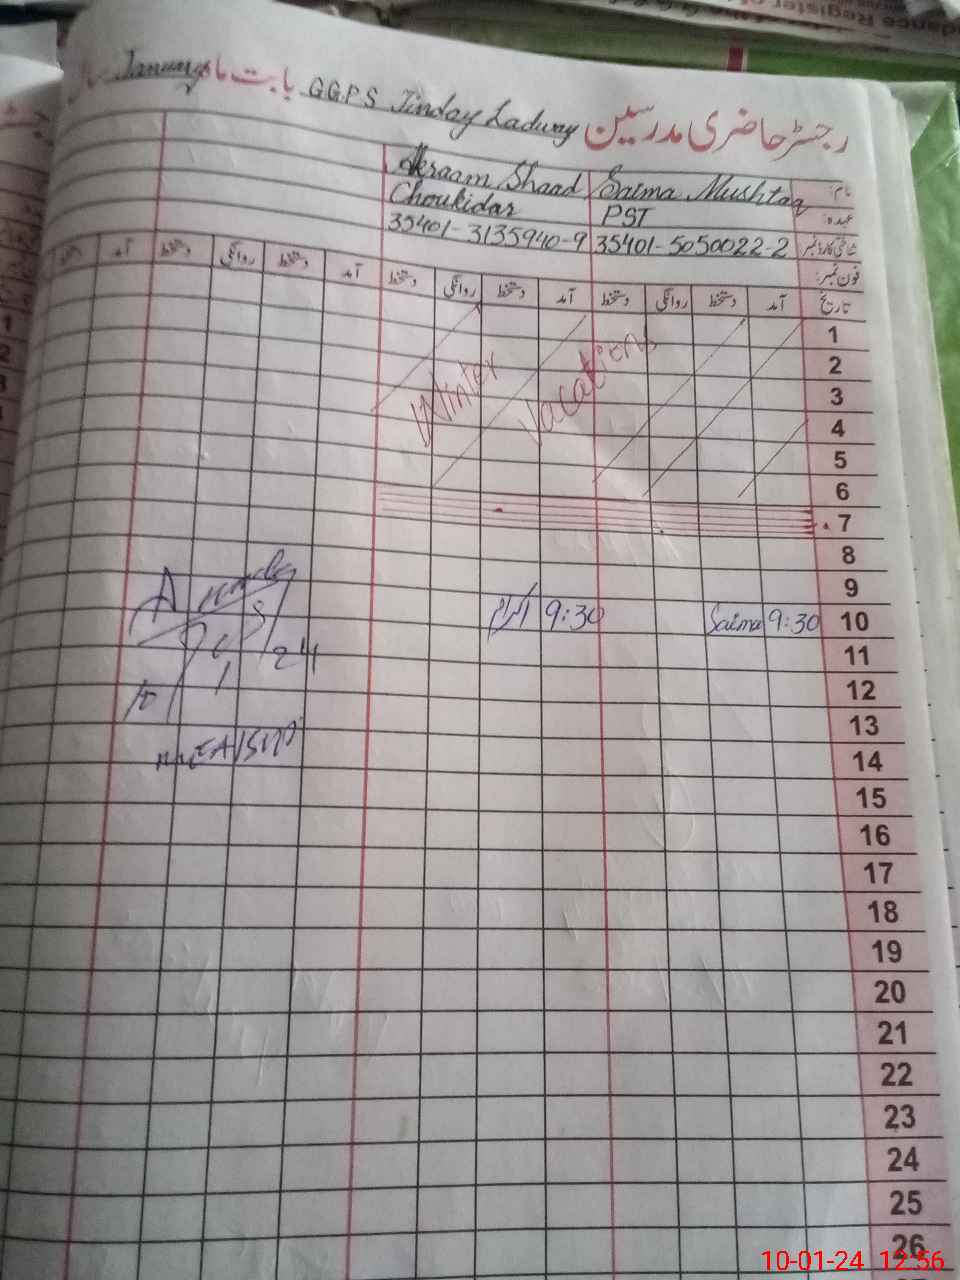 dance Register of
رجسٹر حاضری مدرسین GGPS Jinday Ladwny بابت ماہ January سال
نام: Saima Mushtaq Akraam Shaad
عہدہ: PST Choukidar
شناختی کارڈ نمبر 35401-5050022-2 35401-3135940-9
فون نمبر:
تاریخ آمد دستخط روانگی دستخط آمد دستخط روانگی دستخط آمد دستخط روانگی دستخط آمد دستخط
1
2
Winter vacations
3
4
5
6
7
8
9
10 9:30 Saima 9:30 اکرام
11
12
13
14
15
16
17
18
19
20
21
22
23
24
25
26
10-01-24 12:56